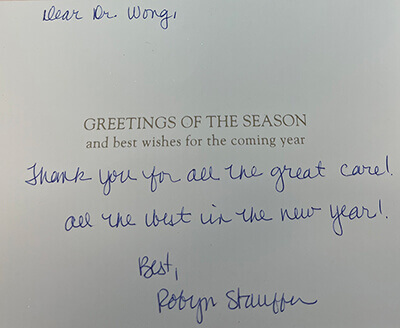 Dear Dr. Wong,
GREETINGS OF THE SEASON
and best wishes for the coming year
Thank you for all the great care!
all the best in the new year!
Best,
Robyn Stauffer